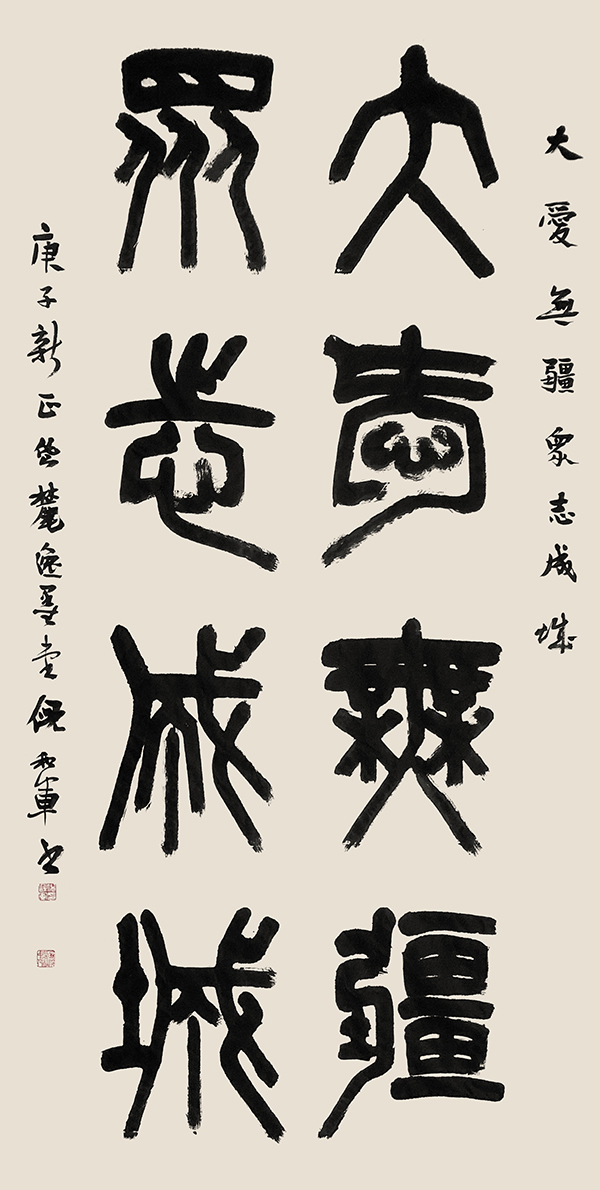 大愛無疆眾志成城
大愛無疆
眾志成城
庚子新正岳麓逸墨堂倪和軍书